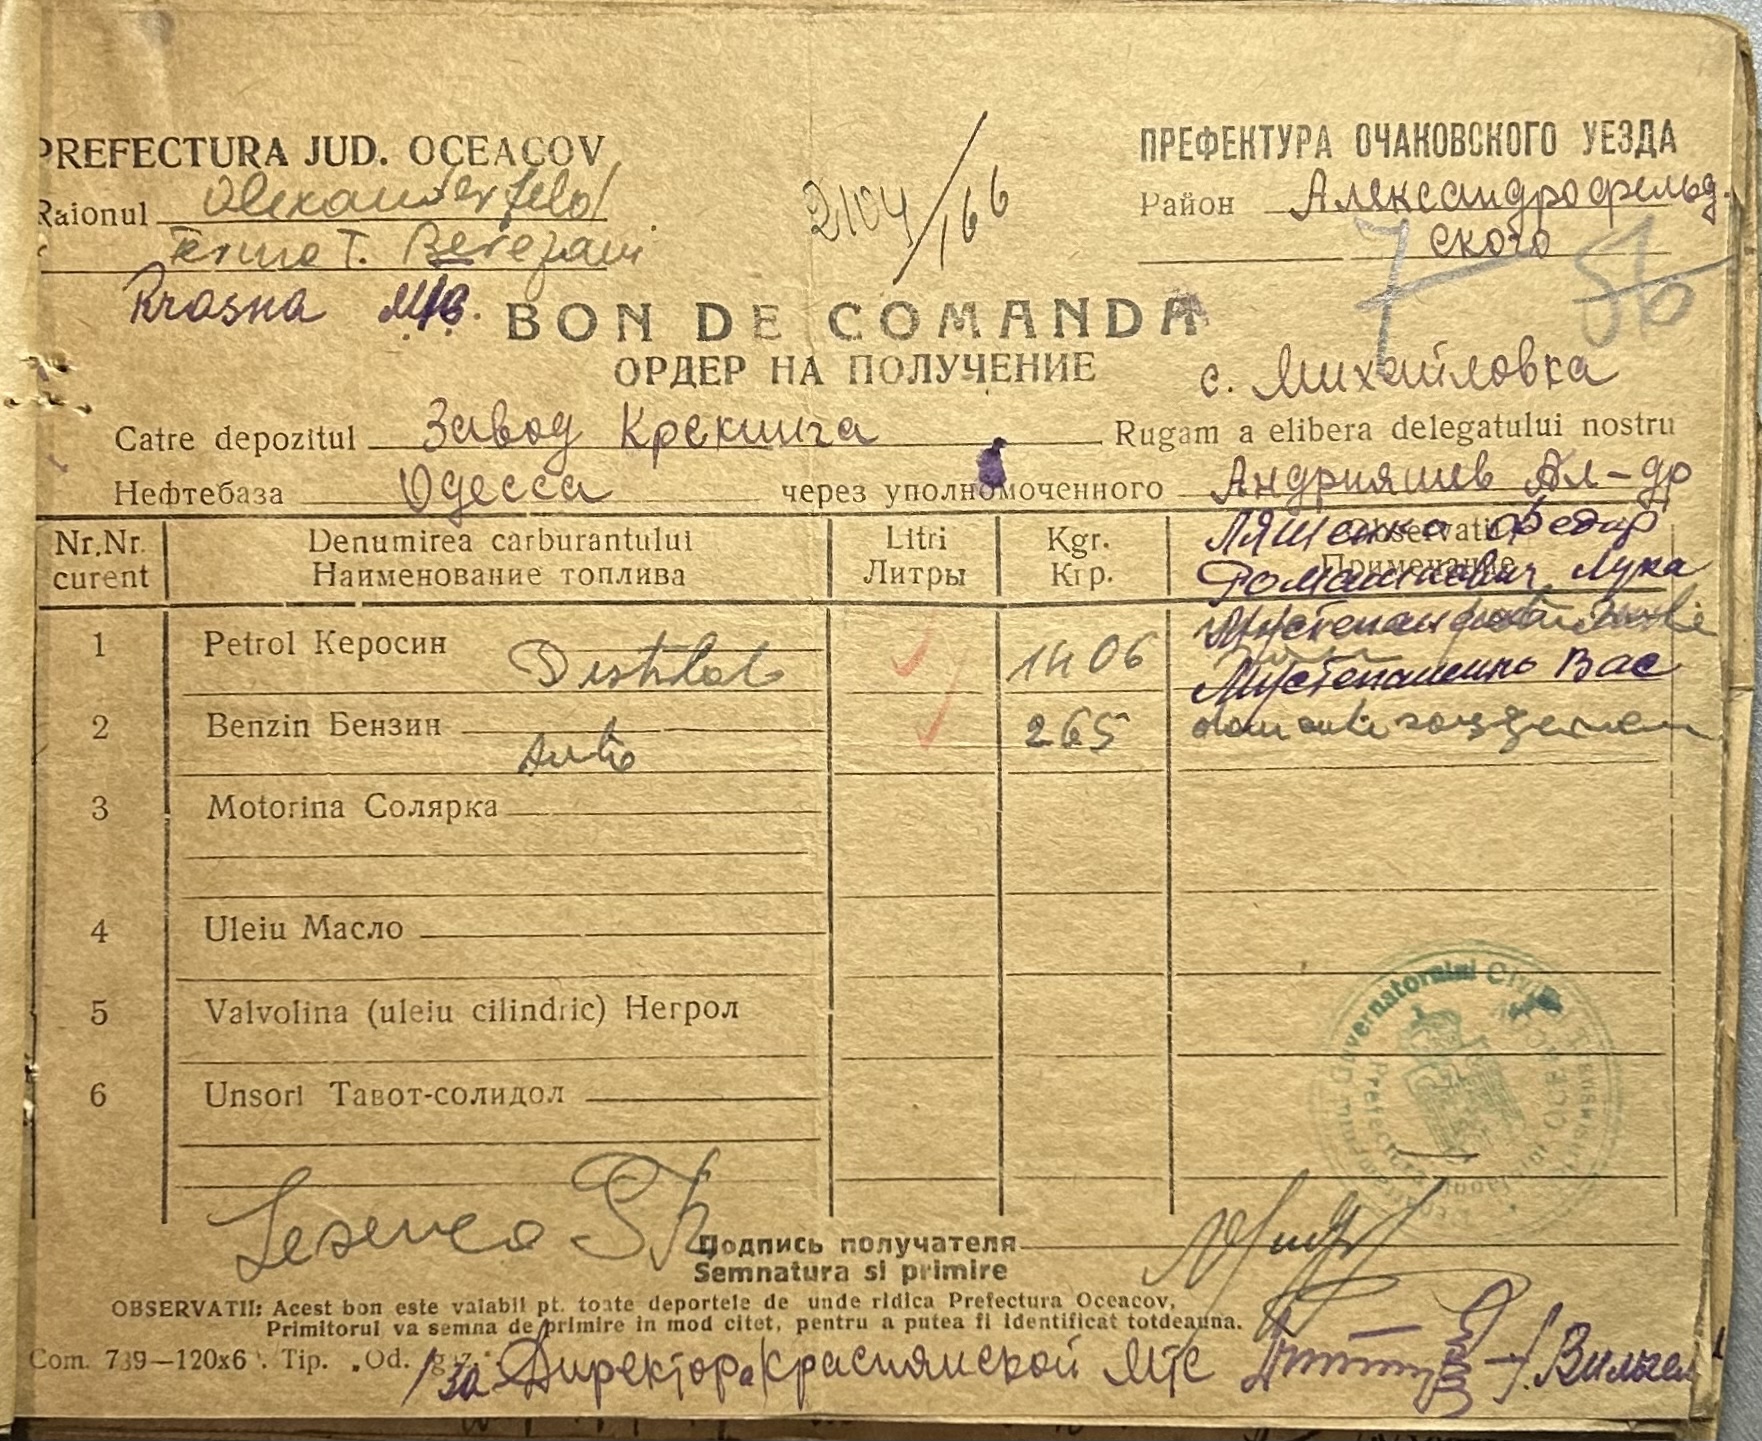 PREFECTURA JUD. OCEACOV
Raionul Alexanderfeld
T. Berezani
Krasna
2104/166
ПРЕФЕКТУРА ОЧАКОВСКОГО УЕЗДА
Район Александрофельд-
ского
7 56
BON DE COMANDA
ОРДЕР НА ПОЛУЧЕНИЕ
с. Михайловка
Catre depozitul Завод Крекинга Rugam a elibera delegatului nostru
Нефтебаза Одесса через уполномоченного Андрияшев Ал-др
Nr.Nr. curent
Denumirea carburantului
Наименование топлива
Litri
Литры
Kgr.
Кгр.
Observatii
Примечание
Ляшенко Федир
Ромашкевич Лука
1 Petrol Керосин Distilat 1406
Мустепаненко Вас
2 Benzin Бензин Auto 265
3 Motorina Солярка
4 Uleiu Масло
5 Valvolina (uleiu cilindric) Негрол
6 Unsori Тавот-солидол
Guvernatorului Civil
Prefectura
Подпись получателя
Semnatura si primire
OBSERVATII: Acest bon este valabil pt. toate deportele de unde ridica Prefectura Oceacov,
Primitorul va semna de primire in mod citet, pentru a putea fi identificat totdeauna.
Com. 739—120x6 . Tip. „Od. gaz."
За Директора Краснянской МТС